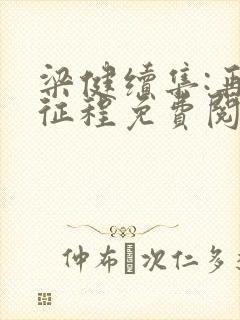 梁健续集:再
征程免費閱
仲布 次仁多